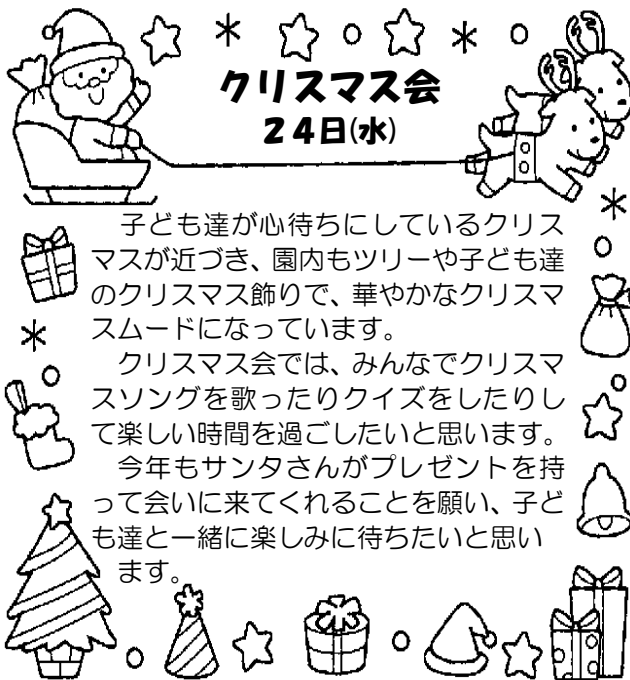 クリスマス会
24日(水)
子ども達が心待ちにしているクリス
マスが近づき、園内もツリーや子ども達
のクリスマス飾りで、華やかなクリスマ
スムードになっています。
クリスマス会では、みんなでクリスマ
スソングを歌ったりクイズをしたりし
て楽しい時間を過ごしたいと思います。
今年もサンタさんがプレゼントを持
って会いに来てくれることを願い、子ど
も達と一緒に楽しみに待ちたいと思い
ます。